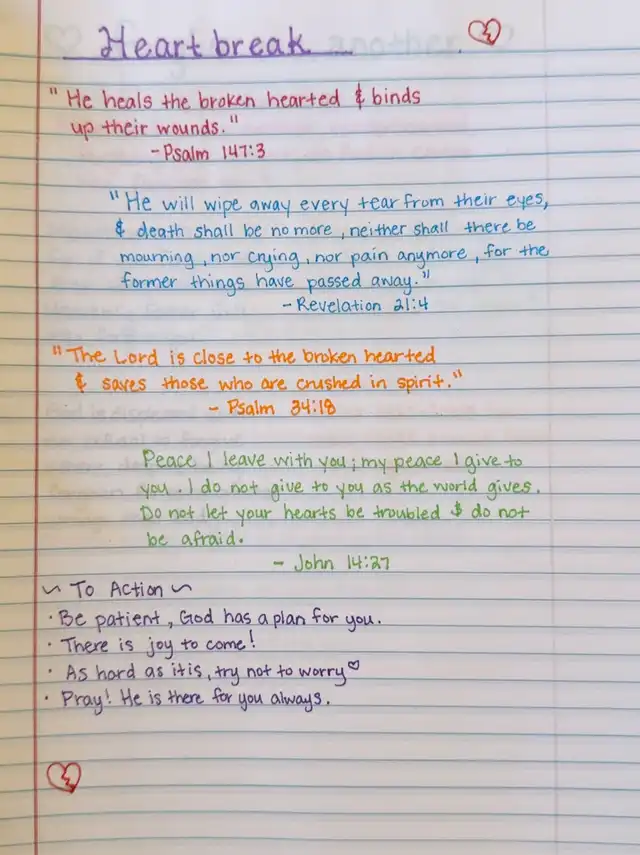 Heartbreak
"He heals the broken hearted & binds
up their wounds."
-Psalm 147:3
"He will wipe away every tear from their eyes,
& death shall be no more, neither shall there be
mourning, nor crying, nor pain anymore, for the
former things have passed away."
-Revelation 21:4
"The Lord is close to the broken hearted
& saves those who are crushed in spirit."
- Psalm 34:18
Peace I leave with you; my peace I give to
you. I do not give to you as the world gives.
Do not let your hearts be troubled & do not
be afraid.
- John 14:27
~ To Action ~
· Be patient, God has a plan for you.
· There is joy to come!
· As hard as it is, try not to worry♡
· Pray! He is there for you always.